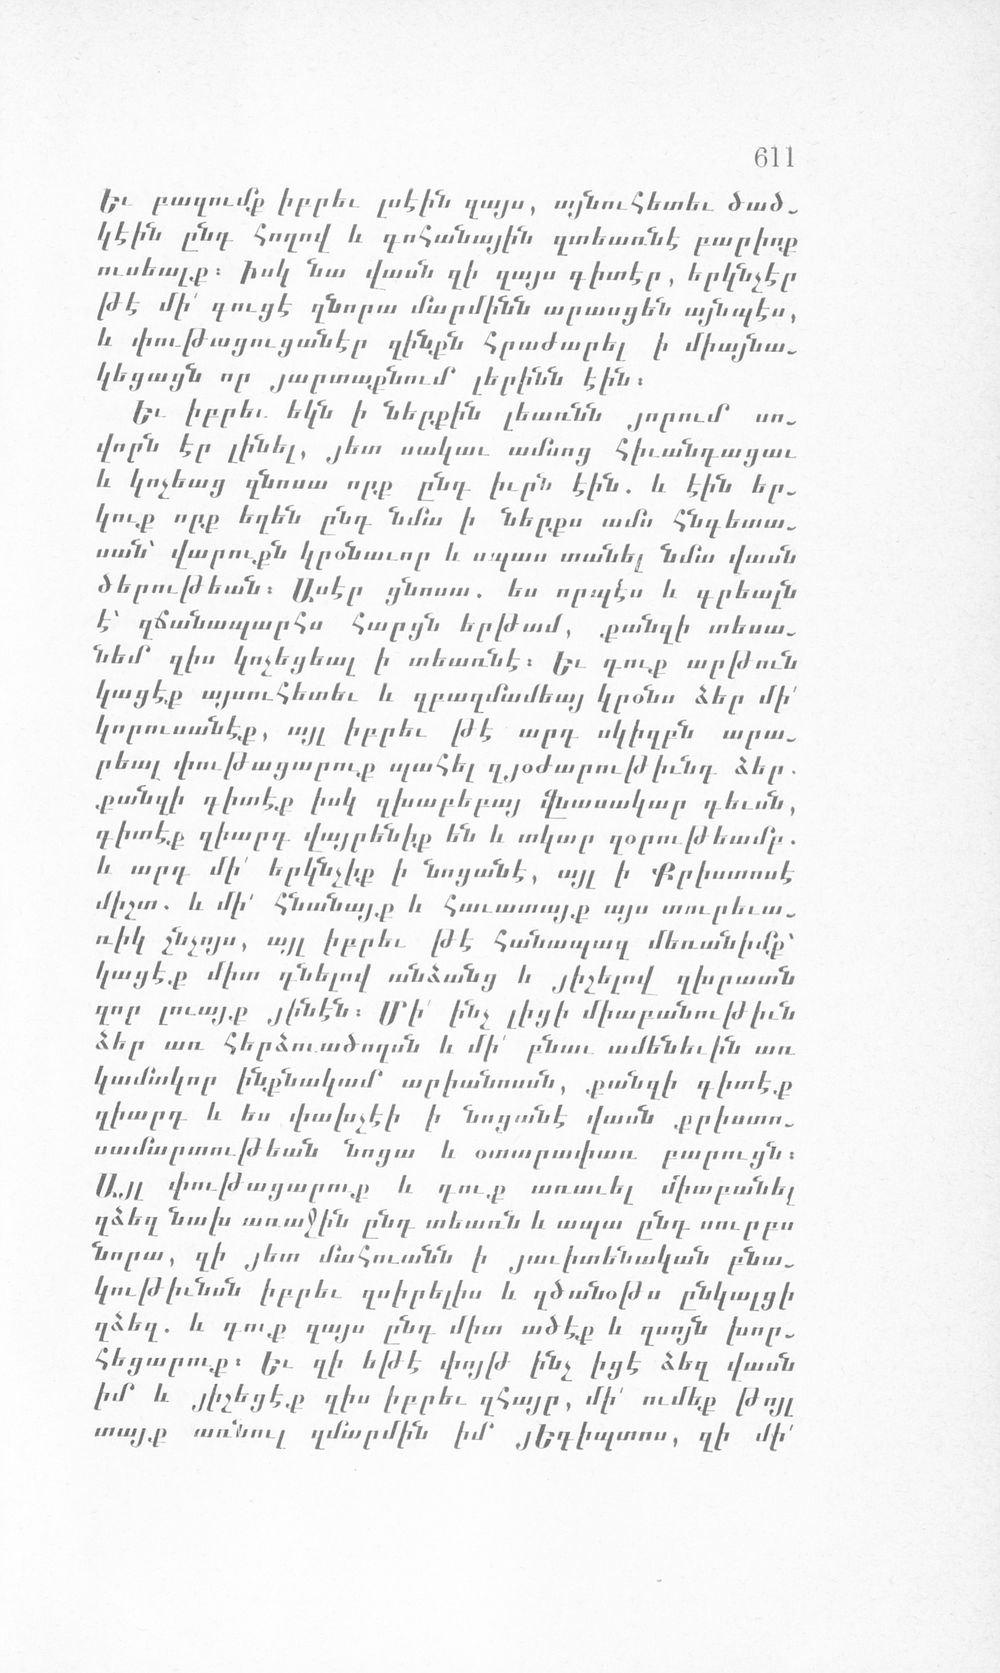 611
Եւ բազումք իբրեւ լսէին զայս, այնուհետեւ ծած֊
կէին ընդ հողով և գոհանային զտեառնէ բարիոք
ուսեալք։ Իսկ նա վասն զի զայս գիտէր, երկնչէր
թէ մի՛ գուցէ զնորա մարմինն արասցեն այնպէս,
և փութացուցանէր զինքն հրաժարել ի միայնա֊
կեցացն որ յարտաքնում լերինն էին։
Եւ իբրեւ եկն ի ներքին լեառնն յորում սո֊
վորն էր լինել, յետ սակաւ ամսոց հիւանդացաւ
և կոչեաց զնոսա որք ընդ իւրն էին. և էին եր֊
կուք որք եղեն ընդ նմա ի ներքս ամս հնգետա֊
սան՝ վարուքն կրօնաւոր և սպաս տանել նմա վասն
ծերութեան։ Ասէր ցնոսա. ես որպէս և գրեալն
է՝ զճանապարհս հարցն երթամ, քանզի տեսա֊
նեմ զիս կոչեցեալ ի տեառնէ։ Եւ դուք արթուն
կացէք այսուհետեւ և զբազմամեայ կրօնս ձեր մի՛
կորուսանէք, այլ իբրեւ թէ արդ սկիզբն արա֊
րեալ փութացարուք պահել զյօժարութիւնդ ձեր.
քանզի գիտէք իսկ զխաբեբայ վնասակար դեւսն,
գիտէք զիարդ վայրենիք են և տկար զօրութեամբ.
և արդ մի՛ երկնչիք ի նոցանէ, այլ ի Քրիստոսէ
միշտ. և մի՛ հնանայք և հաւատայք այս տուրեւա֊
ռիկ շնչոյս, այլ իբրեւ թէ հանապազ մեռանիմք՝
կացէք միտ դնելով անձանց և յիշելով զխրատն
զոր լուայք յինէն։ Մի՛ ինչ լիցի միաբանութիւն
ձեր առ հերձուածողսն և մի՛ բնաւ ամենեւին առ
կամակոր ինքնակամ արիանոսսն, քանզի գիտէք
զիարդ և ես փախչէի ի նոցանէ վասն քրիստո֊
սամարտութեան նոցա և օտարափառ բարուցն։
Այլ փութացարուք և դուք առաւել միաբանել
զձեզ նախ առաջին ընդ տեառն և ապա ընդ սուրբս
նորա, զի յետ մահուանն ի յաւիտենական բնա֊
կութիւնսն իբրեւ զսիրելիս և զծանօթս ընկալցի
զձեզ. և դուք զայս ընդ միտ ածէք և զսոյն խոր֊
հեցարուք։ Եւ զի եթէ փոյթ ինչ իցէ ձեզ վասն
իմ և յիշեցէք զիս իբրեւ զհայր, մի՛ ումեք թոյլ
տայք առնուլ զմարմին իմ յԵգիպտոս, զի մի՛